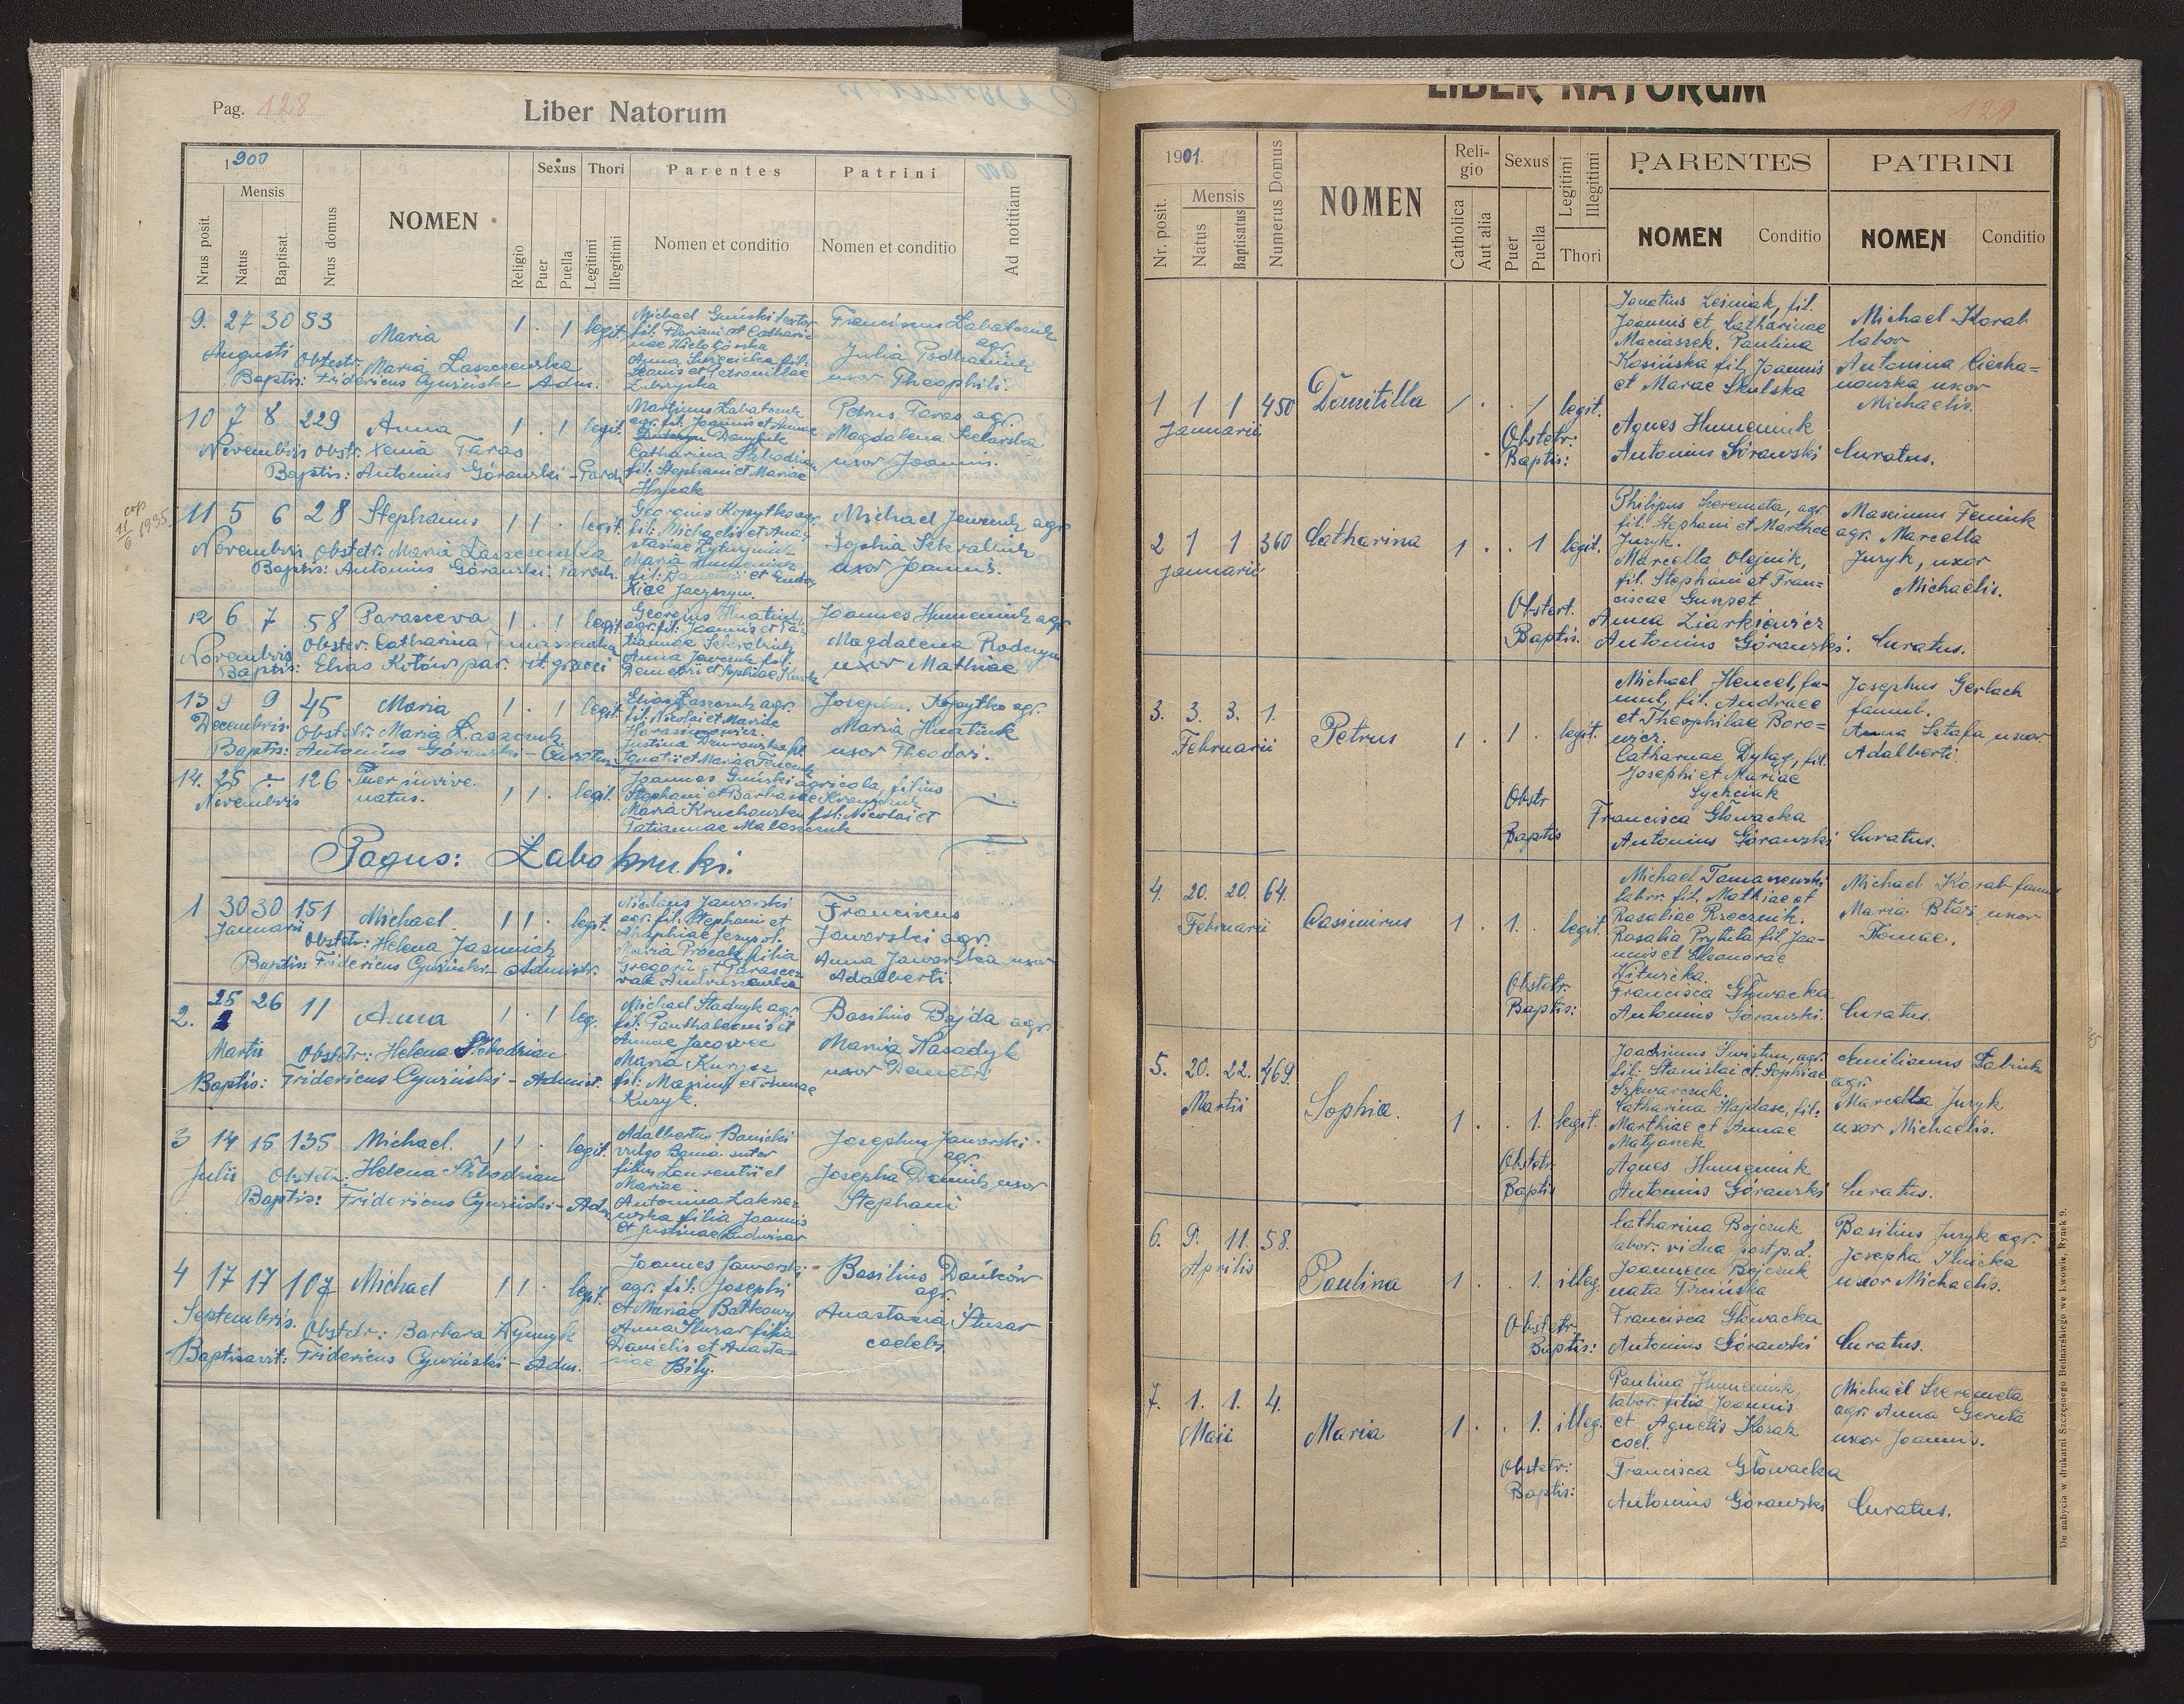 Pag. 128
Liber Natorum
1900
Mensis
Nrus posit.
Natus
Baptisat.
Nrus domus
NOMEN
Religio
Sexus
Puer
Puella
Thori
Legitimi
Illegitimi
Parentes
Nomen et conditio
Patrini
Nomen et conditio
Ad notitiam
9. 27 30 53 Maria 1 . 1 legit.
Augusti
Obstetr: Maria Laszczewska
Baptis: Fridericus Cywiński Adm.
Michael Guński textor
fil: Floriani et Cathari
nae
Anna Świecicka fil:
et Petronillae
Franciscus Łabatczuk
agr.
Julia
uxor Theophili.
10 7 8 229 Anna 1 . 1 legit.
Novembris Obstr: Xenia Taras
Baptis: Antonius Górawski - Paroch
Martinus Łabatczuk
agr. fil: Joannis et Annae
Danyluk
Catharina Słobodzian
fil: Stephani et Mariae
Hrycak
Petrus Taras agr.
Magdalena
uxor Joannis.
11 5 6 28 Stephanus 1 1 . legit.
Novembris Obstetr: Maria Laszczewska
Baptis: Antonius Górawski: Paroch.
Georgius Kopytko agr.
fil: Michaelis et Ana
stasiae
Maria Humeniuk
Michael Jawczuk agr
Sophia
uxor Joannis.
12 6 7 58 Parasceva 1 . 1 legit
Novembris Obster: Catharina
Baptis: Elias Kotów par. rit. graeci
Georgius Hnatiuk
agr. fil: Joannis et Ta
tiannae
Anna Jawczuk fil:
Demetri et Sophiae
Joannes Humeniuk agr
Magdalena
uxor Mathiae
13 9 9 45 Maria 1 . 1 legit.
Decembris: Obstetr: Maria Laszczuk
Baptis: Antonius Górawski - Curatus.
Elias Łaszczuk agr.
fil: Nicolai et Mariae
Justina
Ignatii et Mariae
Josephus Kopytko agr.
Maria Hnatiuk
uxor Theodori.
14. 25 ÷ 126 Puer invive
natus. 1 1 . legit.
Novembris
Joannes Guński agricola, filius
Stephani et Barbarae
Maria Kruchowska fil: Nicolai et
Tatiannae Malaszczuk
Pagus: Łabokruki.
1 30 30 151 Michael. 1 1 . legit.
Januarii
Obstetr: Helena
Baptis: Fridericus Cywiński - Administr.
Nicolaus Jaworski
agr. fil: Stephani et
Maria Procak filia
Gregorii et Parasce
vae
Franciscus
Jaworski agr.
Anna Jaworska uxor
Adalberti.
2. 25 26 11 Anna 1 . 1 leg.
Martii Obstetr: Helena Słobodzian
Baptis: Fridericus Cywiński - Administ.
Michael Stadnyk agr.
fil: Panthaleonis et
Annae Jacowec
Maria Kurysz
fil: Maximi et Annae
Kuzyk.
Basilius Bajda agr
Maria Nasadyk
uxor Demetri
3 14 15 135 Michael. 1 1 . legit.
Julii Obstetr: Helena Słobodzian
Baptis: Fridericus Cywiński - Adm
Adalbertus Banicki
vulgo Bania. sutor
filius Laurentii et
Mariae
Antonina Zakrze
wska filia Joannis
et Justinae Ludwisar
Josephus Jaworski
agr.
Josepha uxor
Stephani
4 17 17 107 Michael 1 1 . legit.
Septembris. Obstetr: Barbara
Baptisavit: Fridericus Cywiński - Adm.
Joannes Jaworski
agr. fil: Josephi
et Mariae
Anna Ślusar filia
Danielis et Anasta=
siae Biły.
Basilius Dańków
agr.
Anastasia Ślusar
caelebs.
cop
11/6 1935
LIBER NATORUM
129
1901.
Nr. posit.
Mensis
Natus
Baptisatus
Numerus Domus
NOMEN
Religio
Catholica
Aut alia
Sexus
Puer
Puella
Legitimi
Illegitimi
Thori
PARENTES
NOMEN
Conditio
PATRINI
NOMEN
Conditio
1 1 1 450 Domitilla / . . / legit.
Januarii
Ignatius Leśniak, fil.
Joannis et Catharinae
Maciaszek. Paulina
Kosińska fil. Joannis
et Mariae Skulska
Michael Korab
labor
Antonina Ciecha=
nowska uxor
Michaelis.
Obstetr: Agnes Humeniuk
Baptis: Antonius Górawski Curatus.
2 1 1 360 Catharina 1 . . 1 legit.
Januarii
Philipus Szeremeta, agr.
fil. Stephani et Marthae
Juzyk.
Marcella Olejnik,
fil. Stephani et Fran=
ciscae
Maximus Feniuk
agr. Marcella
Juzyk, uxor
Michaelis.
Obstert. Anna Ziarkiewicz
Baptis. Antonius Górawski: Curatus.
3. 3. 3. 1. Petrus 1 . 1 . legit.
Februarii
Michael Hencel, fa-
mul, fil. Andreae
et Theophilae Boro=
wicz.
Catharnae Dyląg, fil.
Josephi et Mariae
Sychciuk
Josephus Gerlach
famul.
Anna Sztafa uxor
Adalberti
Obstr Francisca Głowacka
Baptis Antonius Górawski Curatus.
4. 20. 20. 64. Casimirus 1 . 1. . legit.
Februarii
Michael Tomaszewski
labor. fil. Mathiae et
Rosaliae
Rosalia Prytuta fil. Joa-
nnis et Eleonorae
Michael Korab famul
Maria Błaż uxor
Thomae.
Obstetr. Francisca Głowacka
Baptis: Antonius Górawski. Curatus.
5. 20. 22. 469. Sophia. 1 . . 1. legit.
Martii
Joachimus Świstun, agr.
fil: Stanislai et Sophiae
Szkwarczuk.
Catharina Hajdasz, fil:
Marthiae et Annae
Matyaszek
Aemilianus Łabiuk
agr.
Marcella Juzyk
uxor Michaelis.
Obstetr. Agnes Humeniuk
Baptis Antonius Górawski Curatus.
6. 9. 11. 58. Paulina 1 . . 1. illeg.
Aprilis
Catharina Bojczuk
labor. vidua post p.d.
Joannem Bojczuk
nata Trzcińska
Basilius Juzyk agr.
Josepha Ilnicka
uxor Michaelis.
Obstetr. Francisca Głowacka
Baptis: Antonius Górawski Curatus.
7. 1. 1. 4. Maria 1 . . 1. illeg.
Maii
Paulina Humeniuk,
labor. filia Joannis
et Agnetis Kozak
coel.
Michaël Szeremeta
agr. Anna Geruta
uxor Joannis.
Obstetr: Francisca Głowacka
Baptis: Antonius Górawski Curatus.
Do nabycia w drukarni Szczęsnego Bednarskiego we Lwowie, Rynek 9.